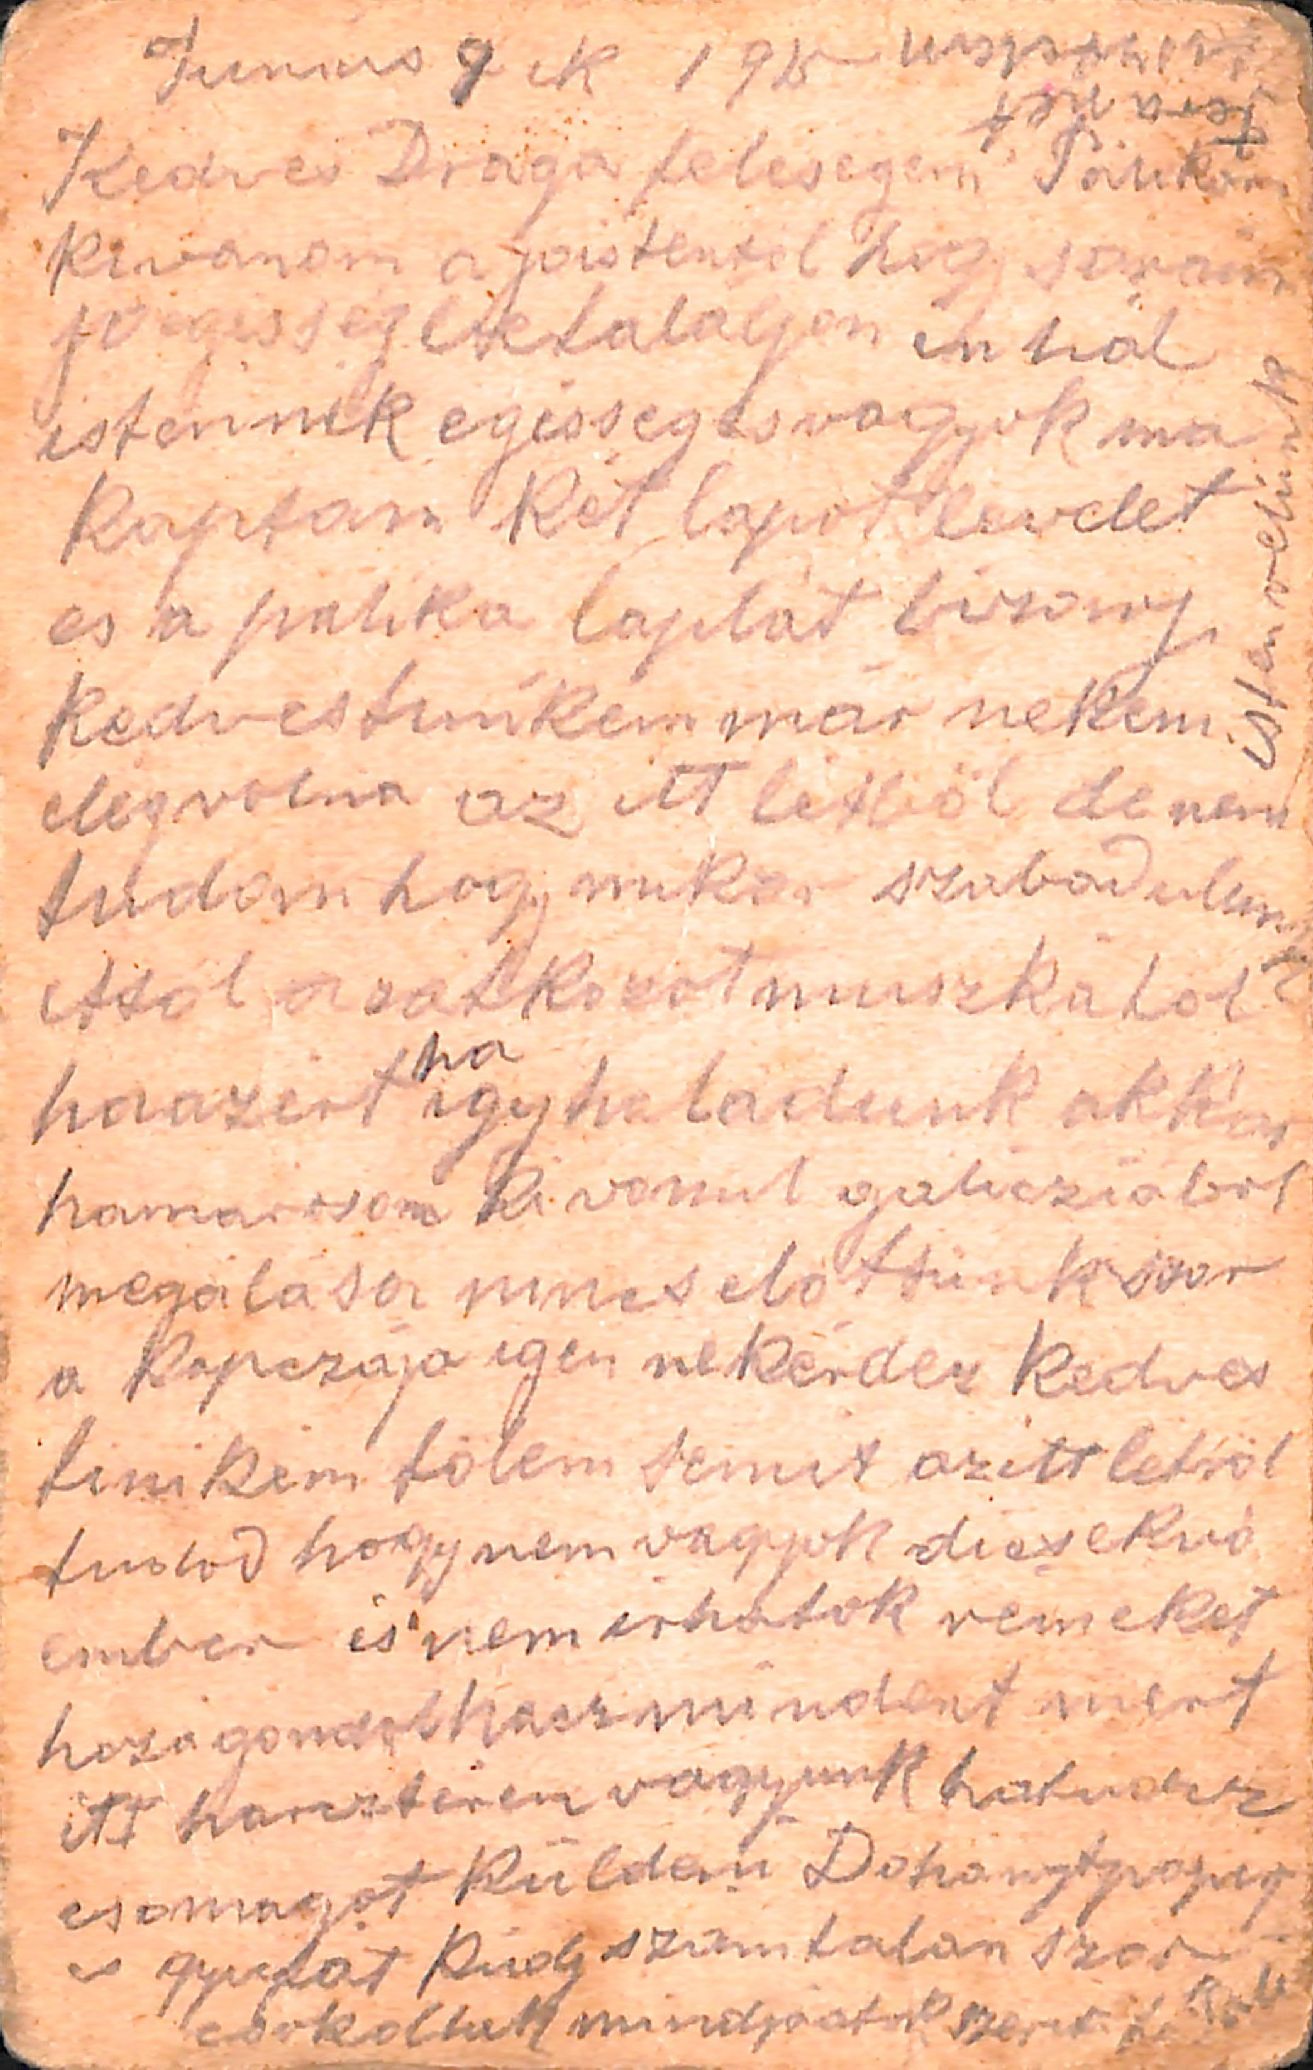 Junius 9 ik 1915
Kedves Draga felesegem Palikam
kivanom a joistentöl hog soraim
jo egisseg be talaljon en hál
istennek egisseges vagyok ma
kaptam két lapot levelet
es a palika lapját bizony
kedves tinikém már nekem
elegvolna az itt létböl de nem
tudom hogy mikor szabadulunk
ettöl az átkozot muszkától
haazert ha igy haladunk akkor
hamarosan ki vonul galicziából
megálása nincs elöttünk szor
a kapczája igen ne kérdez kedves
tinikém tölem semit azitt letröl
tudod hogy nem vagyok dicsekvö
ember is nem irhatok remeket
hozágondolhacz mindent mert
itt harcztéren vagyunk hatudsz
csomagot küldeni Dohanytpapirt
es gyufát küdj számtalanszor
csokollak mindjaatok szerető
isten velünk